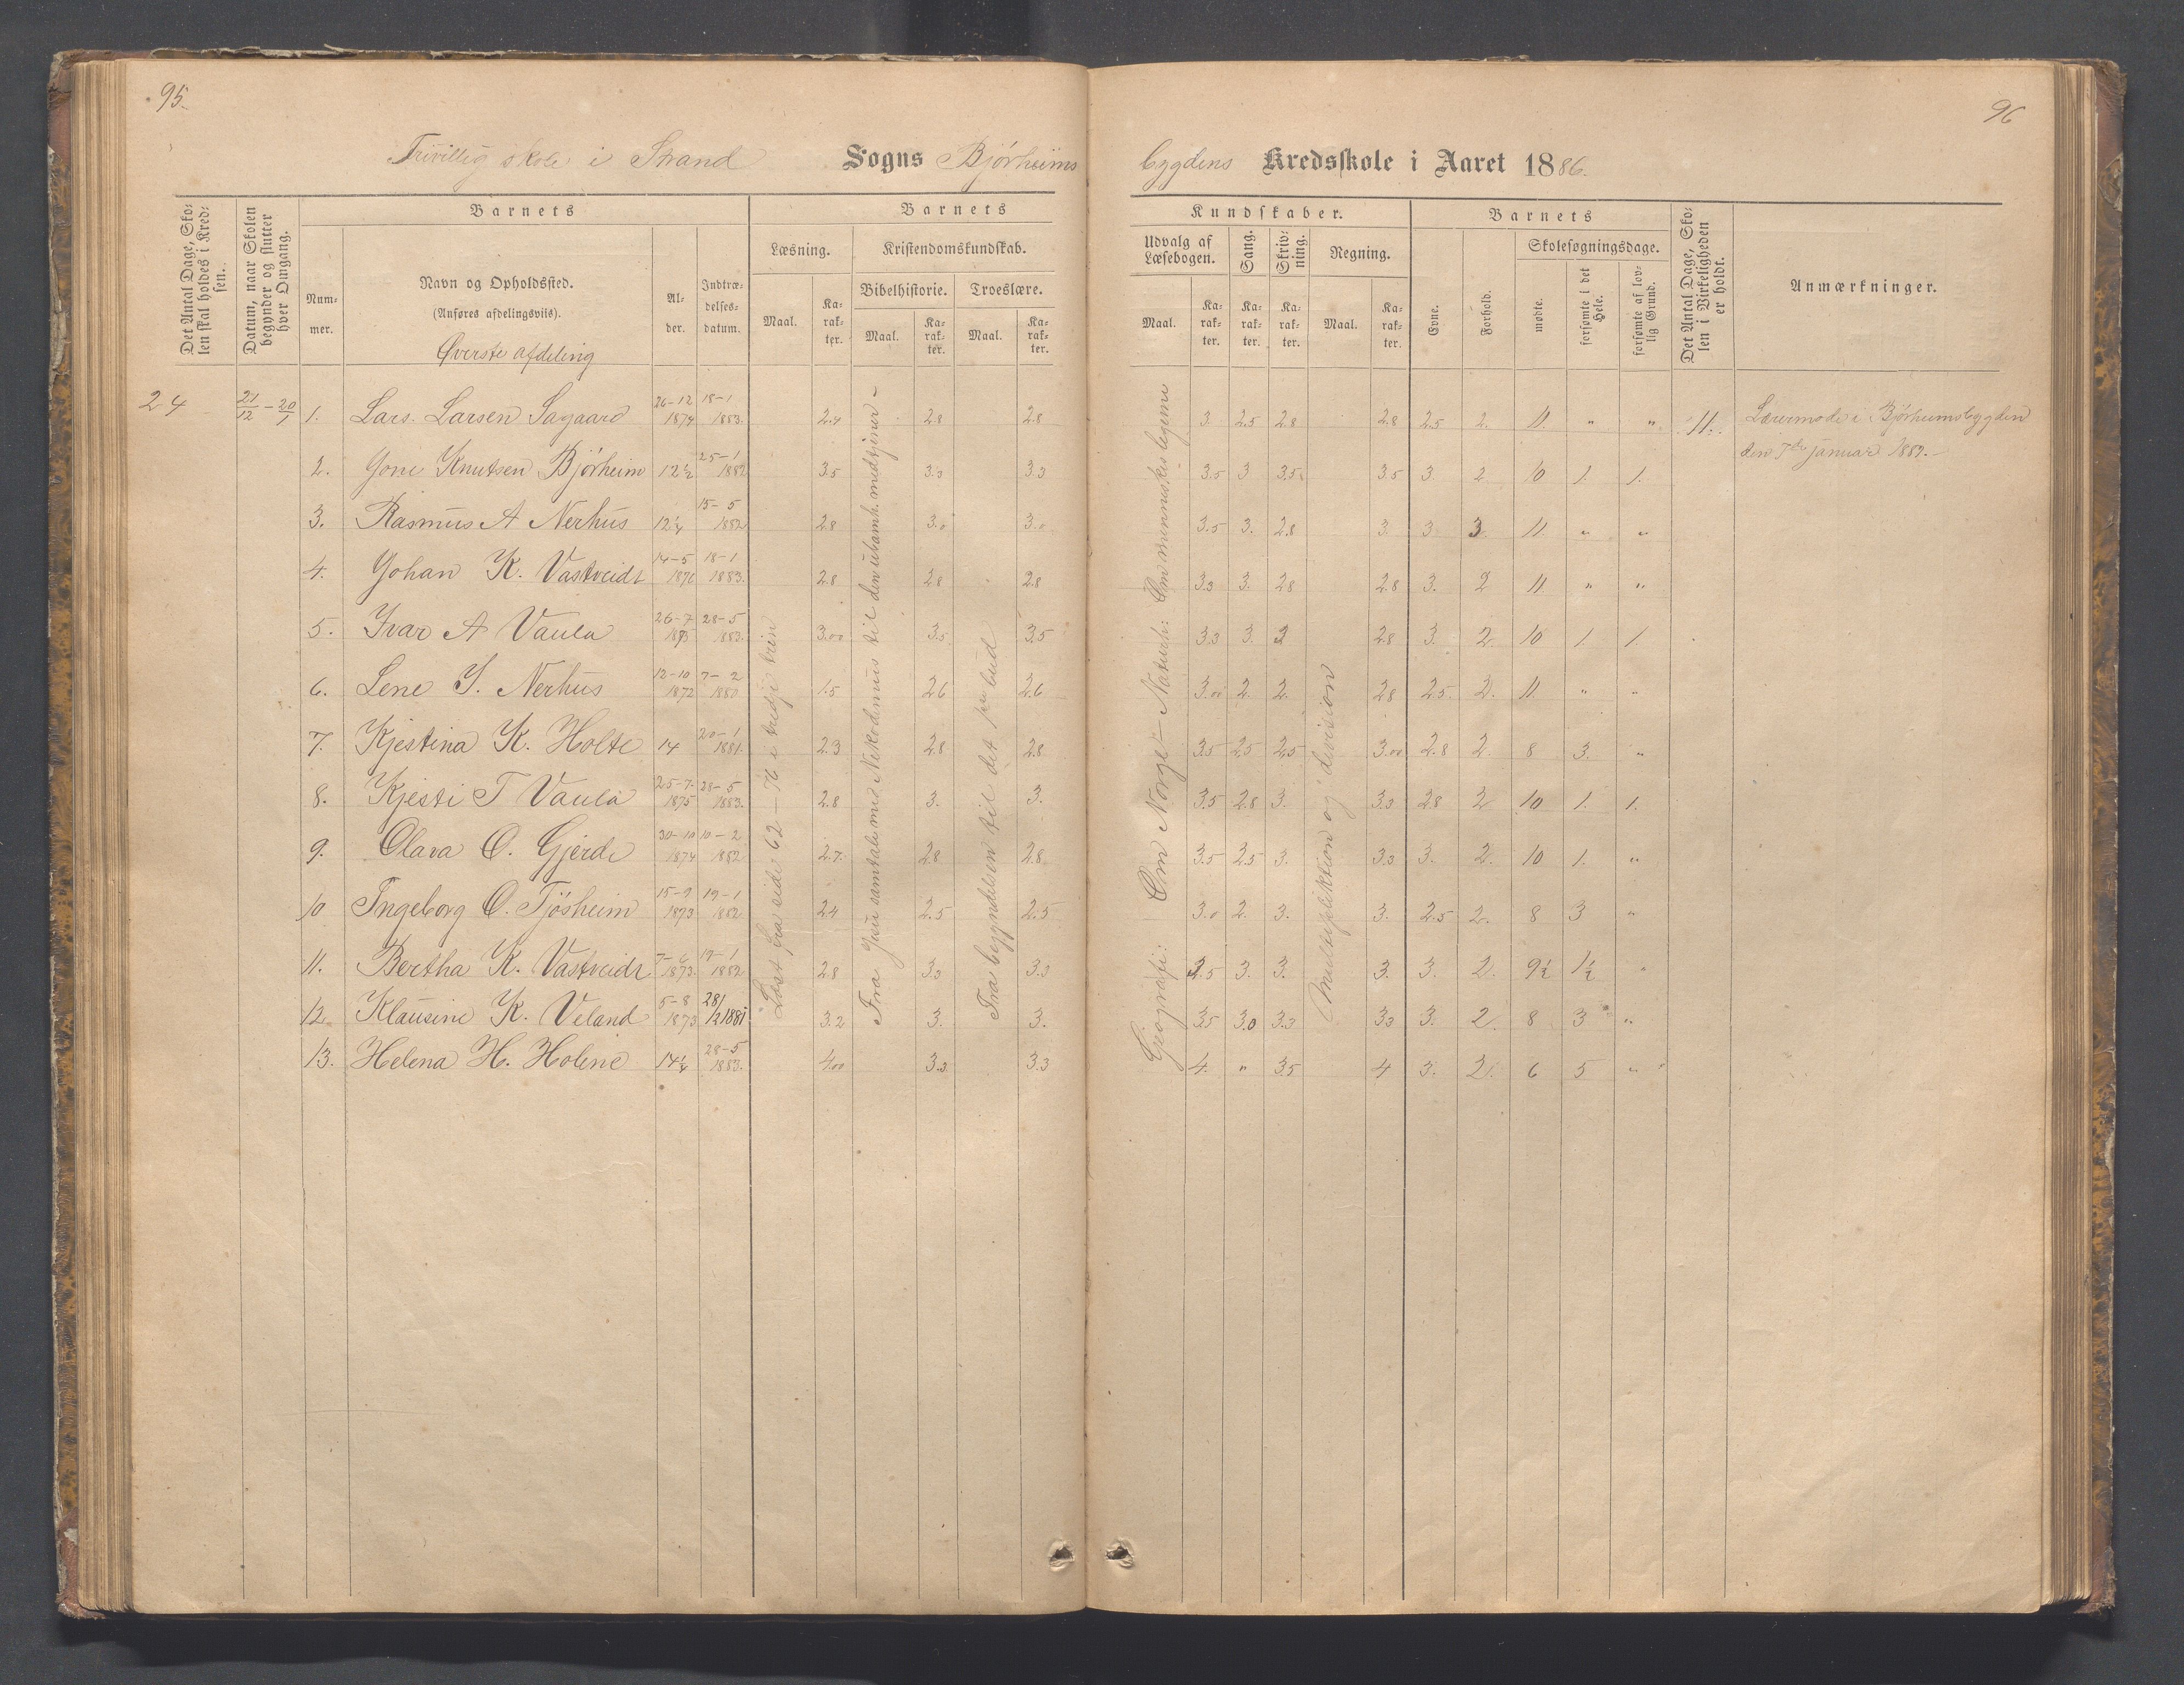 95.
96
Frivillig skole i Strand Sogns Bjørheims
bygdens Kredsskole i Aaret 1886.
Det Antal Dage, Skolen skal holdes i Kredsen.
Datum, naar Skolen begynder og slutter hver Omgang.
Barnets
Nummer.
Navn og Opholdssted.
(Anføres afdelingsvis).
Øverste afdeling
Alder.
Indtrædelsesdatum.
Barnets
Læsning.
Maal.
Karakter.
Kristendomskundskab.
Bibelhistorie.
Maal.
Karakter.
Troeslære.
Maal.
Karakter.
Kundskaber.
Udvalg af Læsebogen.
Maal.
Karakter.
Sang.
Karakter.
Skrivning.
Karakter.
Regning.
Maal.
Karakter.
Barnets
Evne.
Forhold.
Skolesøgningsdage.
mødte.
forsømte i det Hele.
forsømte af lovlig Grund.
Det Antal Dage, Skolen i Virkeligheden er holdt.
Anmærkninger.
24 21/12 – 20/1 1. Lars. Larsen Sagaard 26-12 1874 18-1 1883. 2.4 2.8 2.8 3. 2.5 2.8 2.8 2.5 2. 11. " " 11.
2. Gone Knutsen Bjørheim 12½ 25-1 1882 3.5 3.3 3.3 3.5 3 3.5 3.5 3. 2 10 1. 1.
3. Rasmus A Nerhus 12¼ 15-5 1882 2.8 3.0 3.0 3.5 3. 2.8 3. 3. 3. 11. " "
4. Johan K. Vastveidt 14-5 187 18-1 1883. 2.8 2.8 2.8 3.3 3. 2.8 2.8 3. 2 11. " "
5. Ivar A Vaula 26-7 1875 28-5 1883. 3.00 3.5 3.5 3.3 3. 3 2.8 3. 2. 10 1. 1.
6. Lene J. Nerhus 12-10 1872 7-2 1880 1.5 2.6 2.6 3.00 2. 2. 2.8 2.5 2. 11. " "
7. Kjestina K. Holte 14 20-1 1881. 2.3 2.8 2.8 3.5 2.5 2.5 3.00 2.8 2 8 3. "
8. Kjesti T Vaula 25-7 1875 28-5 1883. 2.8 3. 3. 3.5 2.8 3. 3.3 2.8 2 10 1. 1.
9. Olava O. Gjerde 30-10 1874 10-2 1882 2.7. 2.8 2.8 3.5 2.5 3. 3.3 3. 2. 10 1. "
10 Ingeborg O. Tjøsheim 15-9 1873 19-1 1882 2.4 2.5 2.5 3.0 2. 3. 3. 2.5 2. 8 3 "
11. Bertha K. Vastveidt 7-6 1873. 19-1 1882 2.8 3.3 3.3 3.5 3. 3. 3. 3. 2. 9½ 1½ "
12. Klausine K. Veland 5-8 1873 28/1 1881 3.2 3. 3. 3.5 3.0 3.3 3.3 3. 2. 8 3 "
13. Helena H. Holene 14¼ 28-5 1883. 4.00 3.3 3.3 4. " 3.5 4 3. 2. 6 5 "
Læst fra side 62–76 i tredje trin
Fra Jesu samtale med Nikodemus til den ubarmh. medtjener –
Fra begyndelsen til det bud
Geografi: Om Norge – Naturh: Om menneskelegeme
Multiplektion og division
Lærermøde i Bjørheimsbygden
den 7de januar 1887. –